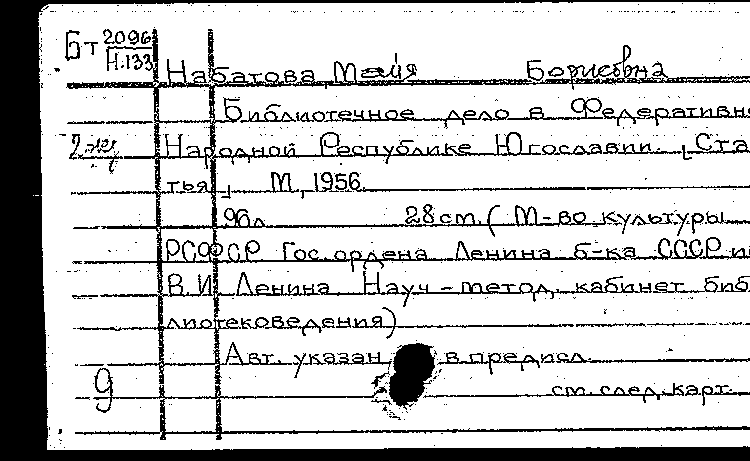 Бт 2096
Н.133
Набатова, Майя Борисовна
Библиотечное дело в Федеративно
2-й
Народной Республике Югославии. [Ста-
тья]. М., 1956.
96 л. 28 см. (М-во культуры
РСФСР Гос. ордена Ленина б-ка СССР им
В.И. Ленина. Науч-метод. кабинет биб
лиотековедения)
Авт. указан в предисл.
9
см. след. карт.